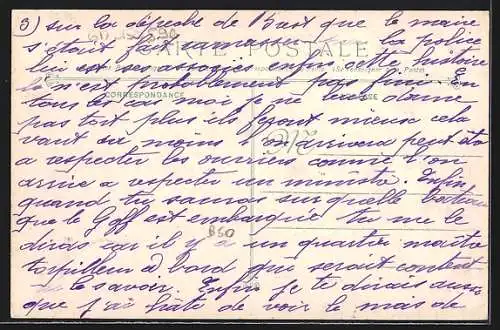 3) sur la dépêche de Brest que le maire
s'était fait ramasser la police
CARTE POSTALE
lui et ses associés enfin cette histoire
là n'est probablement pas fini. En
CORRESPONDANCE
tous les cas moi je ne les blame
pas tout plus ils feront mieux cela
vaut au moins l'on arrivera peut être
a respecter les ouvriers comme l'on
arrive a respecter un ministre. Enfin
quand tu sauras sur quelle bateau
que le Goff est embarqué tu me le
diras car il y a un quartier maitre
B50
torpilleur à bord qui serait content
le savoir. Enfin je te dirais aussi
que j'ai hâte de voir le mois de